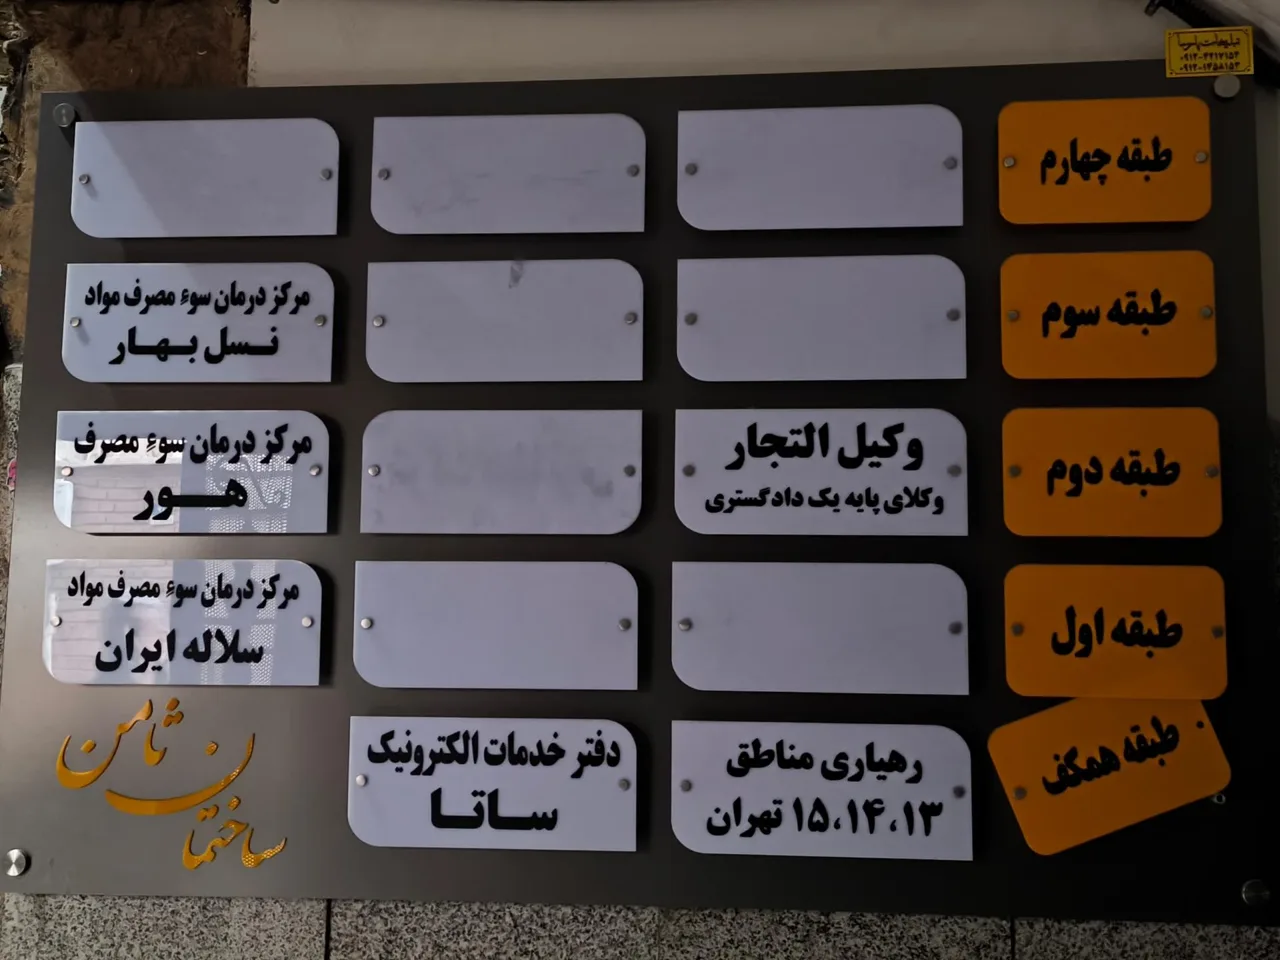 تبلیغات پارسا
۰۹۱۲-۴۲۱۷۱۵۲
۰۹۱۲-۱۴۵۸۱۵۲
طبقه چهارم
طبقه سوم
مرکز درمان سوء مصرف مواد
نسل بهار
طبقه دوم
وکیل التجار
وکلای پایه یک دادگستری
مرکز درمان سوءِ مصرف
هور
طبقه اول
مرکز درمان سوءِ مصرف مواد
سلاله ایران
طبقه همکف
رهیاری مناطق
۱۵،۱۴،۱۳ تهران
دفتر خدمات الکترونیک
ساتا
ساختمان ثامن